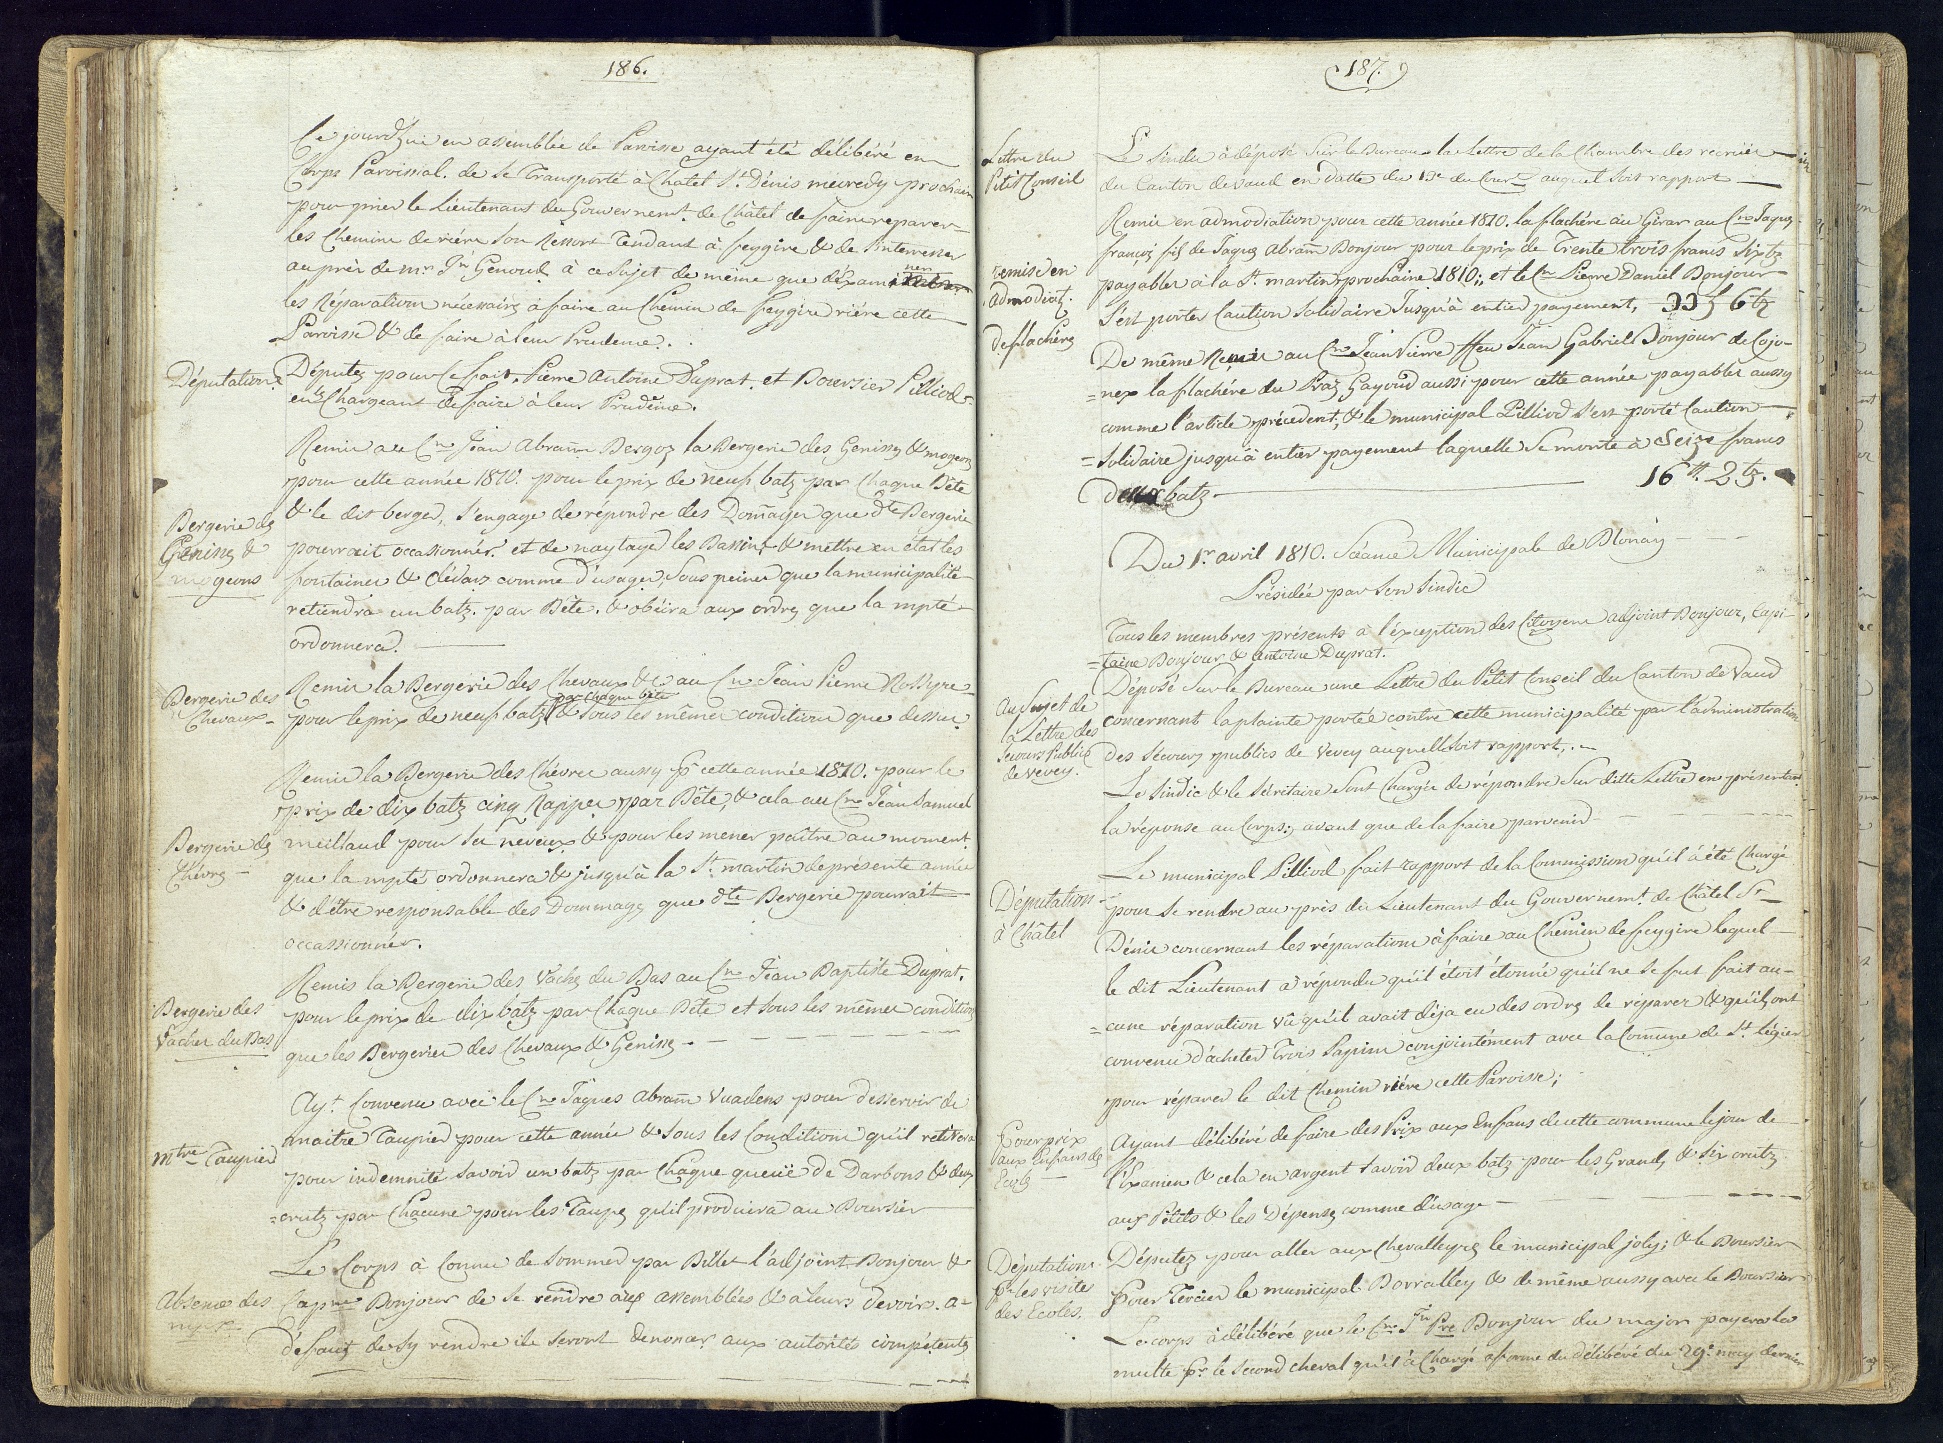 186.
Ce jourd'hui en assemblée de Paroisse ayant été délibéré en
Corps Paroissial. de se transporté à Chatel St. Dénis mecredy prochain
pour prier le Lieutenant du Gouvernemt. de Châtel de faire reparer
les Chemins de riére son Ressort tendant à feygire & de s'interesser
auprès de mr. Jn. Genoud à ce sujet de même que d'examiner
les Réparations nécessaires à faire au Chemin de feygire riére cette
Paroisse & de faire à leur Prudence.
Députation
Députez pour ce fait. Pierre Antoine Duprat. et Boursier Pilliod
en les Chargeant de faire à leur Prudence.
Bergerie des
Genisses &
mogeons
Remis au Cn. Jean Abram Bergoz la Bergerie des Genisses & mogeons
pour cette année 1810. pour le prix de neuf batz par Chaque Bête
& le dit berger, s'engage de répondre des Dommages que dte Bergerie
pourrait occasionner. et de naytayer les Bassins & mettre en état les
fontaines & clédars comme d'usage, sous peine que la municipalité
retiendra un batz. par Bête. & obéira aux ordres que la mpté
ordonnera.
Bergerie des
Chevaux
Remis la Bergerie des Chevaux &c au Cn Jean Pierre Rossyre
par Chaque bête
pour le prix de neuf batz & sous les mêmes conditions que dessus
Bergerie des
Chévres
Remis la Bergerie des Chévres aussy pr cette année 1810. pour le
prix de dix batz cinq Rappes par Bête, & cela au Cn Jean Samuel
meillaud pour ses neveux & pour les mener paître au moment
que la mpté ordonnera & jusqu'à la St. martin de présente année
& d'être responsable des Dommages que dte Bergerie pourrait
occassionner.
Bergerie des
Vaches du Bas
Remis la Bergerie des Vaches du Bas au Cn Jean Baptiste Duprat.
pour le prix de dix batz par Chaque Bête et sous les mêmes conditions
que les Bergeries des Chevaux & Genisses.
mtre Taupier
Ayt. Convenu avec le Cn Jaques Abram Vuadens pour desservir de
maitre Taupier pour cette année & sous les Conditions qu'il retirera
pour indemnité savoir un batz par Chaque queuë de Darbons & deux
=crutz par Chacune pour les Taupes qu'il produira au Boursier
Absence des
Le Corps à Connu de sommer par Billet l'adjoint Bonjour &
Capne Bonjour de se rendre aux assemblées & à leurs devoirs. a-
défaut de s'y rendre ils seront denoncer aux autorités compétentes
187.
Lettre du
Petit Conseil
Le sindic à déposé sur le Bureau la Lettre de la Chambre des recrües
du Canton de vaud en datte du 19e du Court auquel soit rapport
remise en
admodiat.
de flachéres
Remis en admodiation pour cette année 1810. la flachére au Girar au Cn Jaques
françois fils de Jaques Abram Bonjour pour le prix de Trente trois francs six btz
payables à la St. martin prochaine 1810., et le Cn Pierre Daniel Bonjour
s'est porter Caution solidaire jusqu'à entier payement, 33 f 6 btz
De même Remis au Cn Jean Pierre ffeu Jean Gabriel Bonjour de Cojo-
=nex la flachére du Praz Gayoud aussi pour cette année payables aussy
comme l'article précédent; & le municipal Pilliod s'est porté Caution
=solidaire jusqu'à entier payement laquelle se monte à seize francs
deux batz 16 ff. 2 btz.
Du 1r. avril 1810. Séance Municipale de Blonay
Présidée par son Sindic
Tous les membres présents à l'exception des Citoyens adjoint Bonjour, Capi-
=taine Bonjour & Antoine Duprat.
Au sujet de
la Lettre des
secours Publics
de vevey.
Déposé sur le Bureau une Lettre du Petit Conseil du Canton de Vaud
concernant la plainte portée contre cette municipalité par l'administration
des secours publics de vevey auquelle soit rapport,
Le sindic & le secrétaire sont Chargés de répondre sur ditte Lettre en présentant
la réponse au Corps; avant que de la faire parvenir
Députation
à Châtel
Le municipal Pilliod fait rapport de la Commission qu'il à été Chargé
pour se rendre au près du Lieutenant du Gouvernemt. de Châtel St
Dénis concernant les réparations à faire au Chemin de feygire lequel
le dit Lieutenant a répondu qu'il étoit étonné qu'il ne se fut fait au-
=cune réparation vû qu'il avait déja eu des ordres de réparer & qu'ils ont
convenu d'acheter trois sapins conjointément avec la Commune de St. légier
pour réparer le dit Chemin riére cette Paroisse;
Pour prix
aux Enfans des
Ecoles
Ayant délibéré de faire des Prix aux Enfans de cette commune le jour de
l'Examen & cela en argent savoir deux batz pour les Grands & six crutz
aux Petits & les Dépenses comme d'usage
Députations
pr les visites
des Ecoles.
Députez pour aller aux Chevalleyres le municipal joly; & le Boursier
Pour Tercier le municipal Borralley & de même aussy avec le Boursier
Le corps à délibéré que le Cn Jn Pre Bonjour du major payera la
multe pr. le second cheval qu'il à Chargé a forme du délibéré du 29e. may dernier